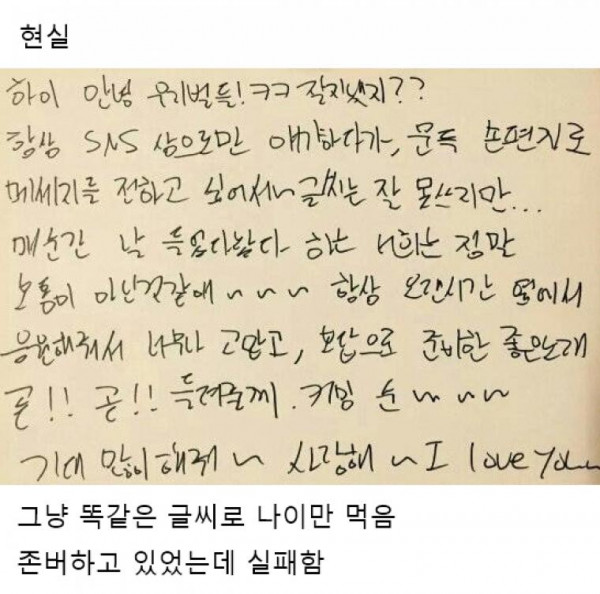 현실
하이 안녕 우리벗들! ㅋㅋ 잘지냈지??
항상 SNS 상으로만 얘기하다가, 문득 손편지로
메세지를 전하고 싶어서~ 글씨는 잘 못쓰지만...
매순간 날 들었다놨다 하는 너희는 정말
보통이 아닌것같애 ~ ~ ~ 항상 오랜시간 옆에서
응원해줘서 너무나 고맙고, 보답으로 준비한 좋은노래
곧!! 곧!! 들려줄께. 커밍 순 ~ ~ ~
기대 많이 해줘 ~ 사랑해 ~ I love You~
그냥 똑같은 글씨로 나이만 먹음
존버하고 있었는데 실패함